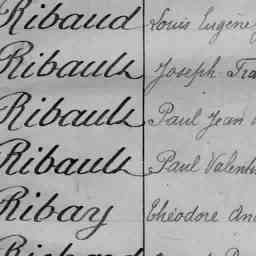 Ribaud Louis Eugène
Ribault Joseph
Ribault Paul Jean
Ribault Paul
Ribay Théodore